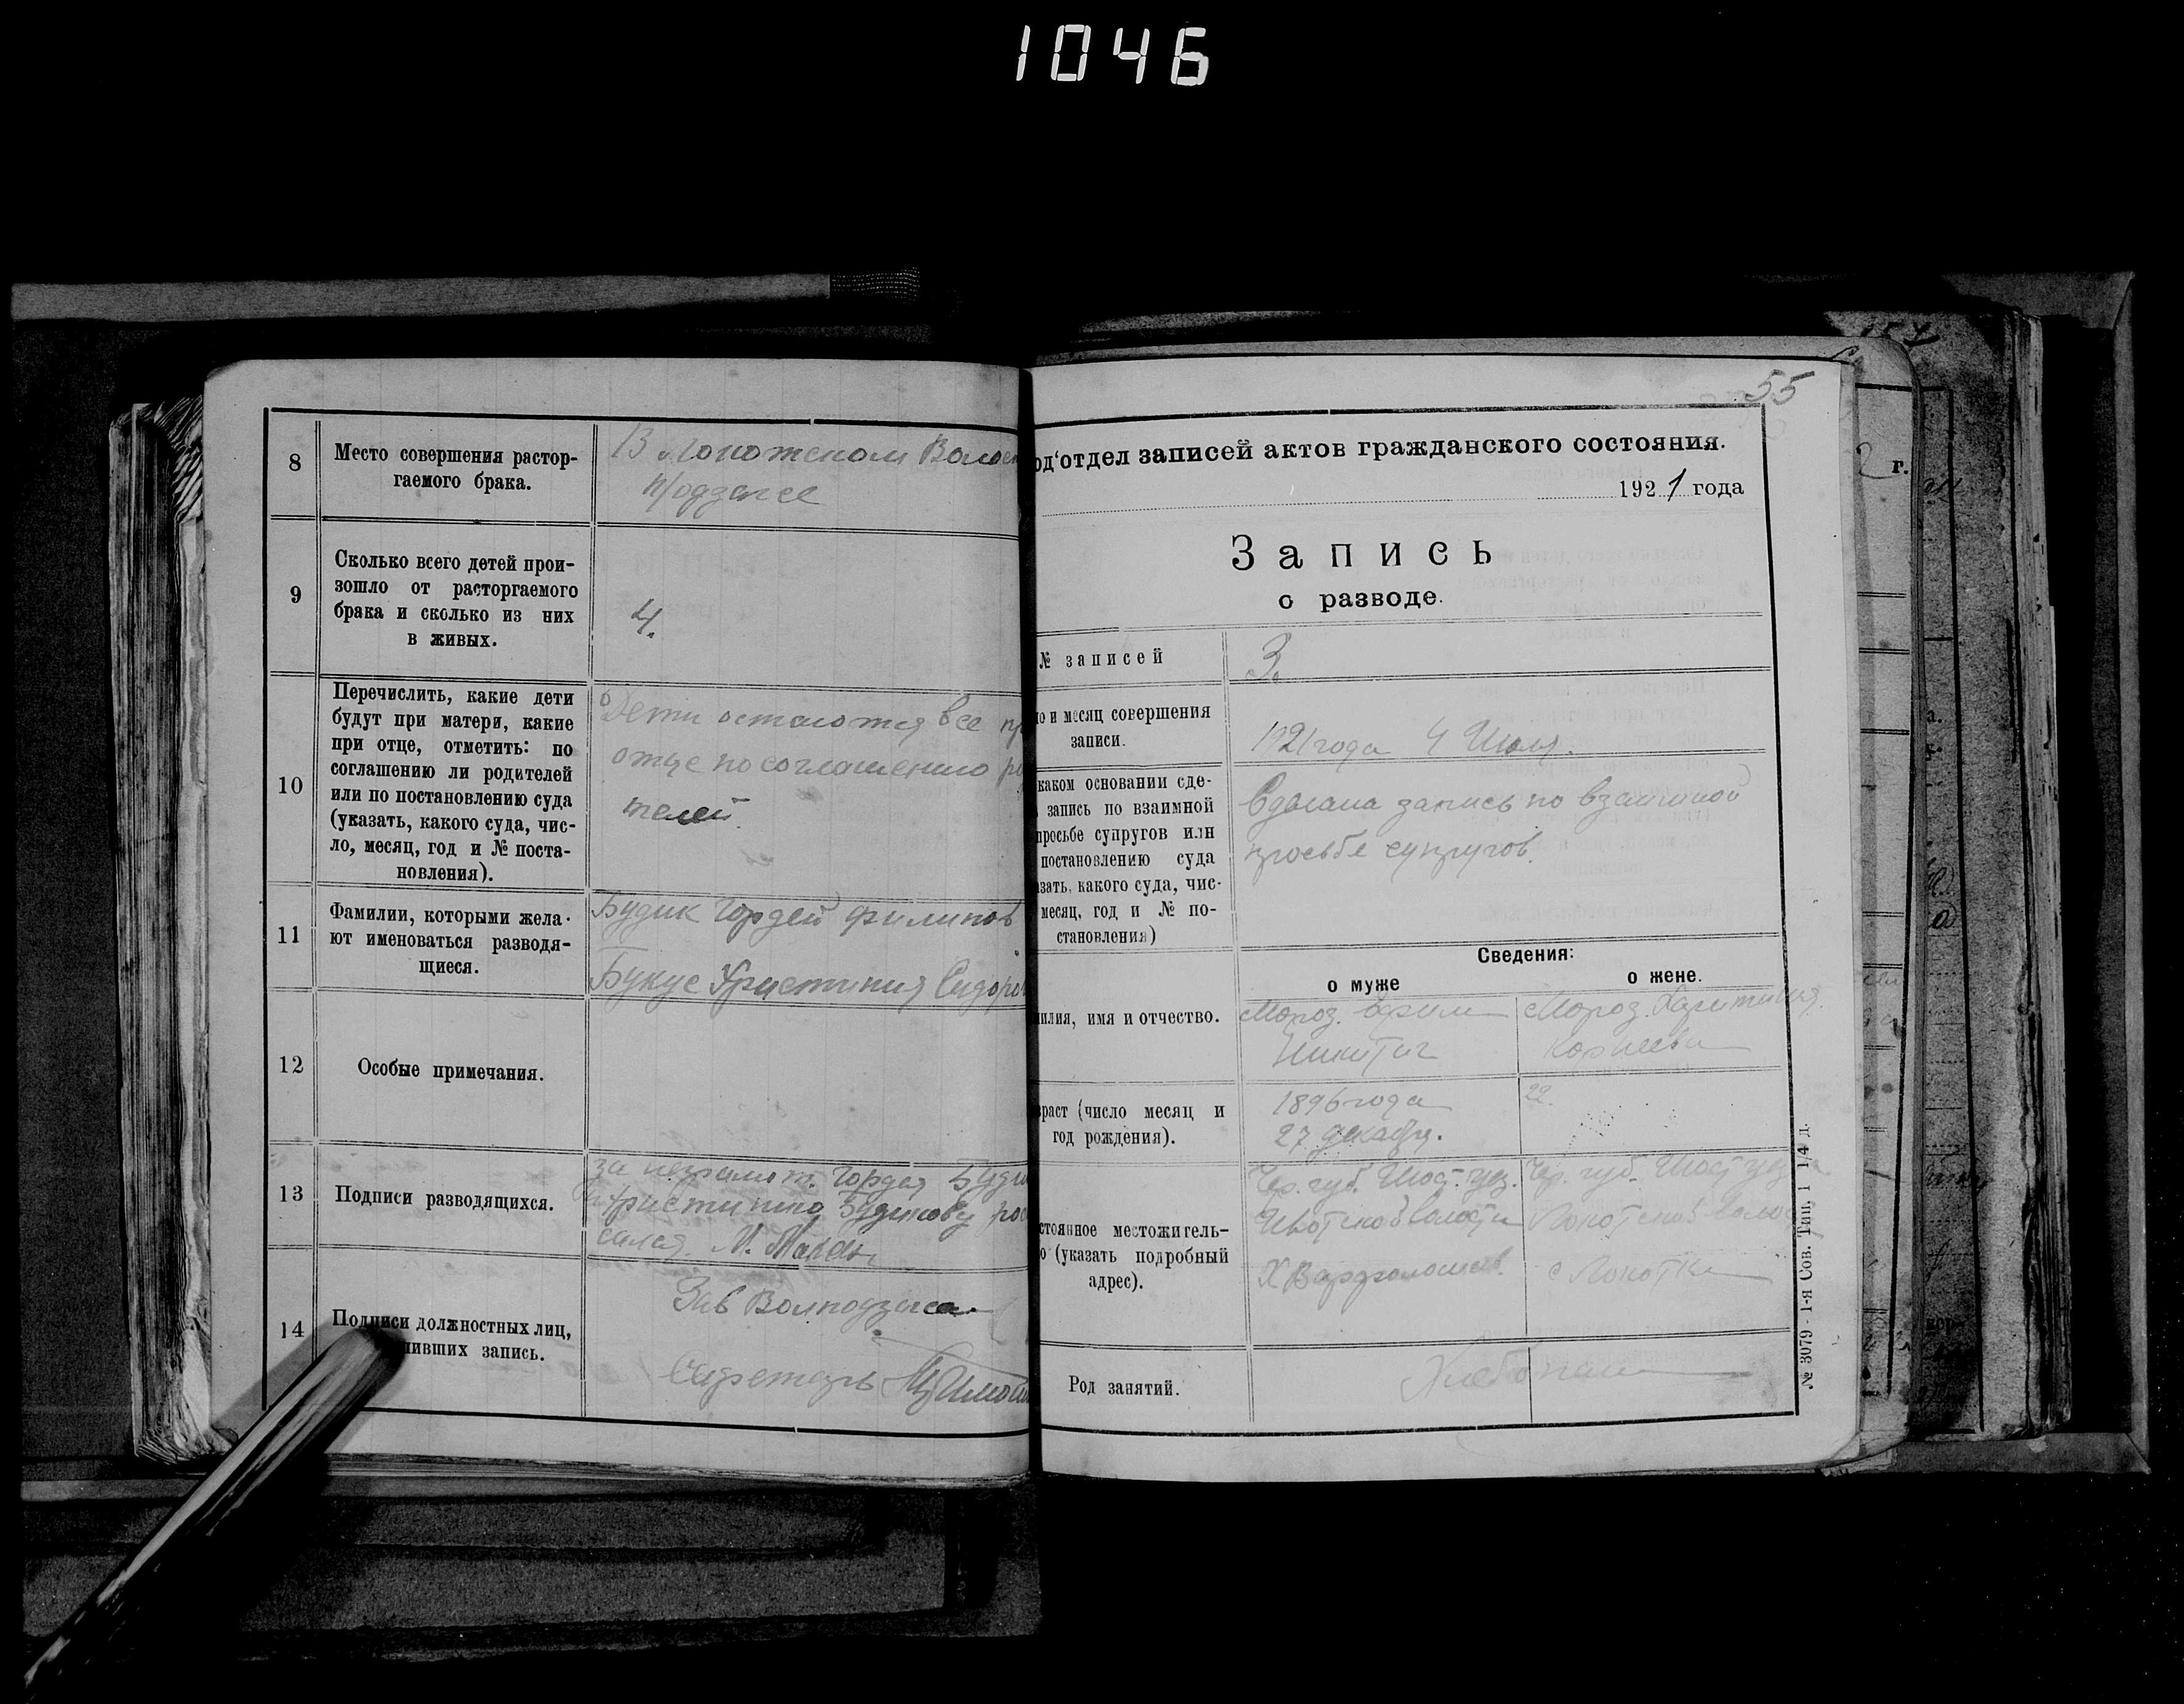 1046
8
Место совершения растор-
гаемого брака.
В Локотском Волос
п/одзагсе
9
Сколько всего детей прои-
зошло от расторгаемого
брака и сколько из них
в живых.
4.
10
Перечислить, какие дети
будут при матери, какие
при отце, отметить: по
соглашению ли родителей
или по постановлению суда
(указать, какого суда, чис-
ло, месяц, год и № поста-
новления).
Дети остаются все пр
отце по соглашению ро
телей.
11
Фамилии, которыми жела-
ют именоваться разводя-
щиеся.
Будик Гордей Филипов
Христиния Сидоро
12
Особые примечания.
13
Подписи разводящихся.
за неграмот. Гордея Буди
Христинию Будикову рос
14
Подписи должностных лиц,
чивших запись.
Зав Волподзагса
Секретарь
55
од‘отдел записей актов гражданского состояния.
1921 года
Запись
о разводе.
№ записей
3.
ло и месяц совершения
записи.
1921 года 4 Июля.
каком основании сде-
запись по взаимной
просьбе супругов или
постановлению суда
азать, какого суда, чис-
месяц, год и № по-
становления)
Сделана запись по взаимной
просьбе супругов.
Сведения:
о муже
о жене.
милия, имя и отчество.
Мороз. Ефим
Никитич
Мороз.
Корнеева
зраст (число месяц и
год рождения).
1896 года
27 декабря.
22.
стоянное местожитель-
о (указать подробный
адрес).
Чер. губ. Шост. уез.
Ивотской волости
Х Варфоломеев.
Чер. губ. Шост уез
Локотской Волос
с Локотки
Род занятий.
Хлебопаш
№ 3079 - 1-я Сов. Тип. 1 1/4 д.
2 г.